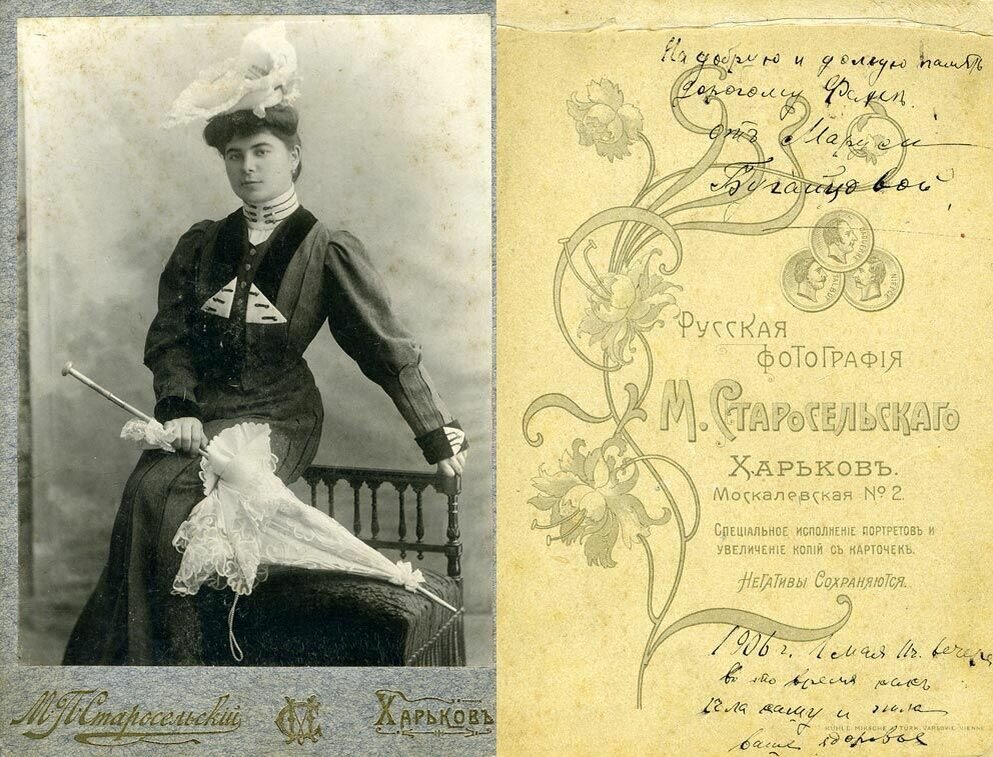 М. П. Старосельскій
Харьковъ
На добрую и долгую память
Дорогому
отъ Маруси
Русская
фотографія
М. Старосельскаго
Харьковъ.
Москалевская № 2.
Спеціальное исполненіе портретовъ и
увеличеніе копій съ карточекъ.
Негативы Сохраняются.
1906 г. 1 мая 11 ч. вечера
въ это время какъ
ѣла кашу и пила
ваше здоровье
KÜHLE, MIKSCHE & TÜRK, VARSOVIE, VIENNE